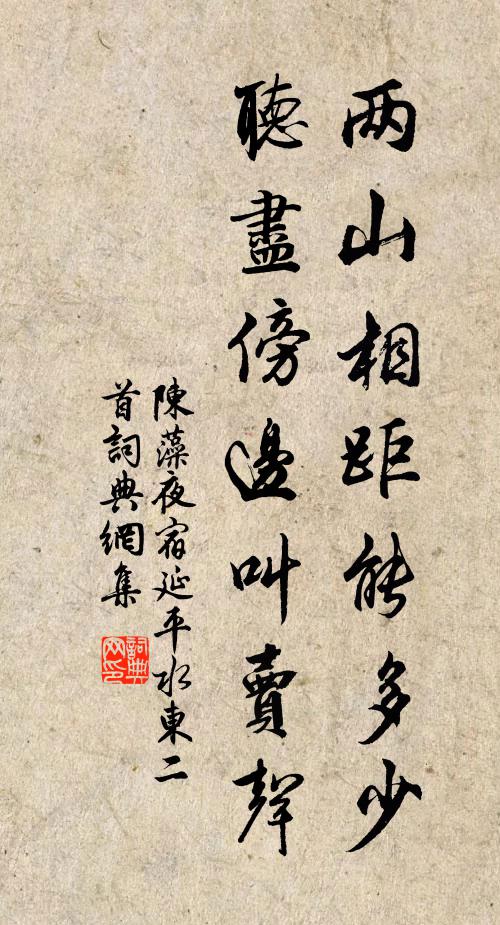 两山相距能多少
聽盡傍邊叫賣聲
陳藻夜宿延平水東二
首詞典網集
詞典網印